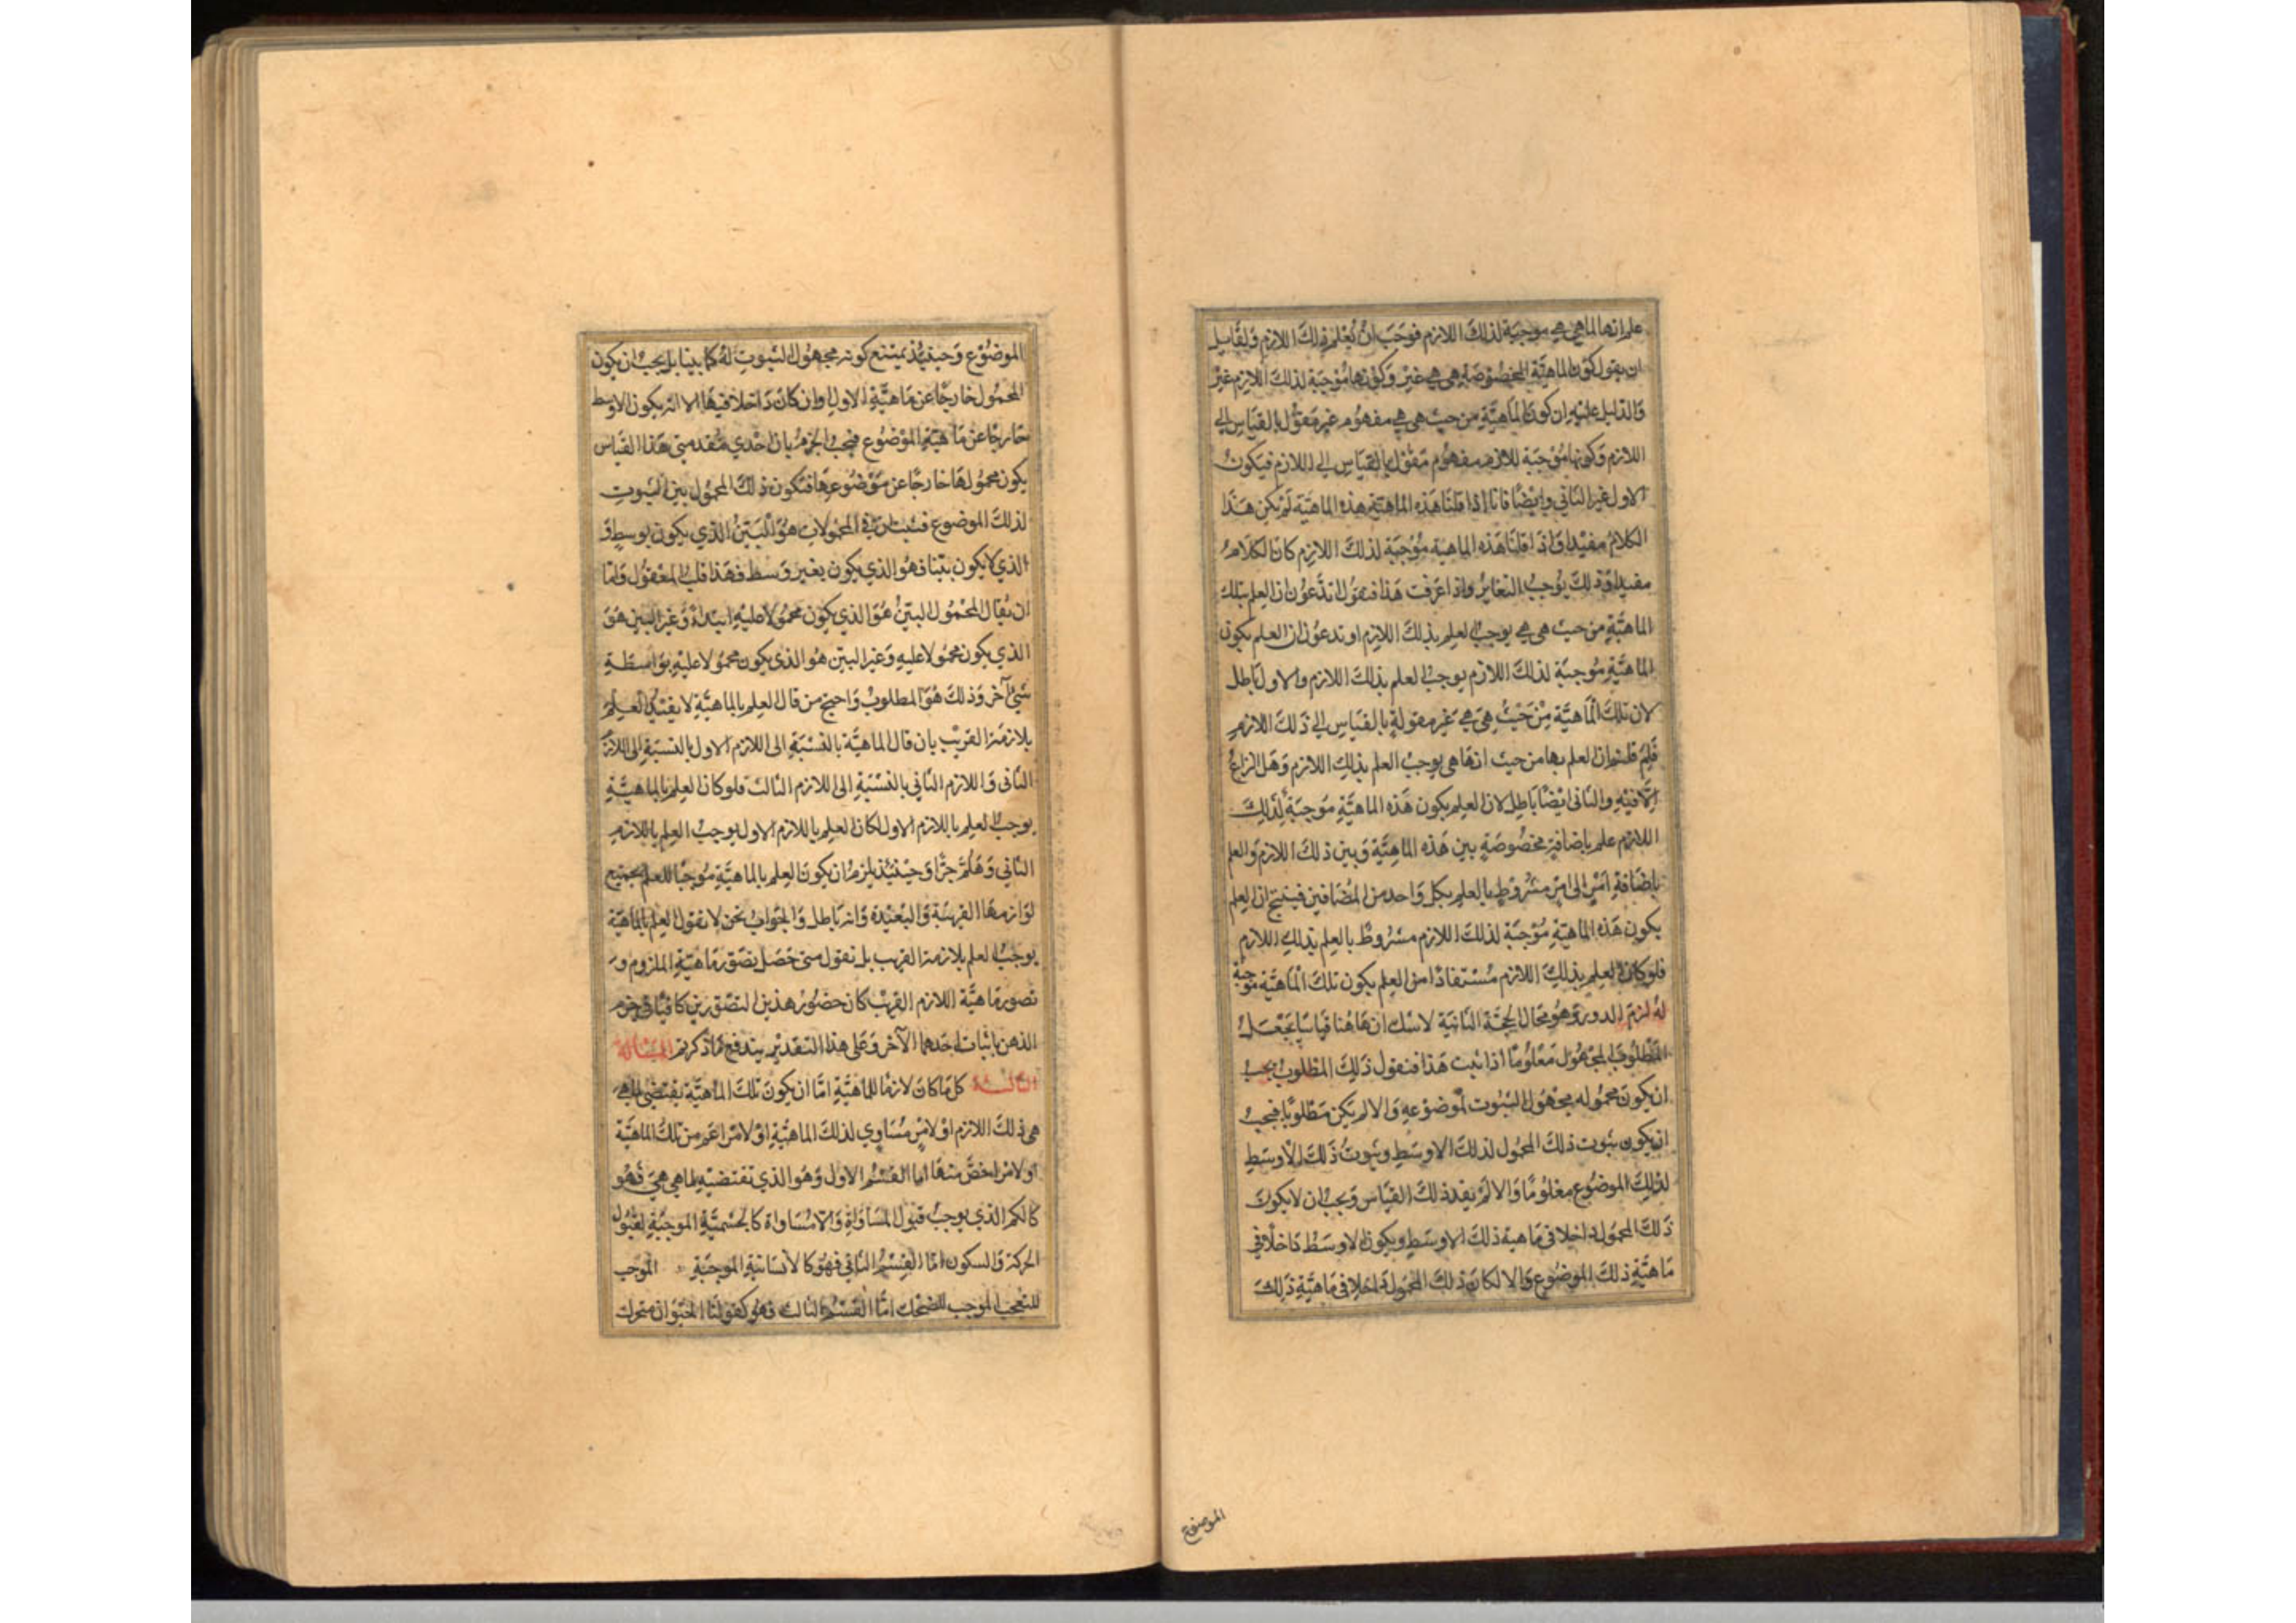 علم انها لما هي هي موجبة لذلك اللازم فوجب ان يعلم ذلك اللازم ولقايل
ان يقول كون الماهية المخصوصة هي هي غير وكونها موجبة لذلك اللازم غير
والدليل عليه ان كون الماهية من حيث هي هي مفهوم غير مقول بالقياس الي
اللازم وكونها موجبة للازم مفهوم مقول بالقياس الى اللازم فيكون
الاول غير الثاني وايضا فانا اذا قلنا هذه الماهية هذه الماهية لم يكن هذا
الكلام مفيدا واذا قلنا هذه الماهية موجبة لذلك اللازم كان الكلام
مفيدا وذلك يوجب التغاير واذا عرفت هذا فنقول اتدعون ان العلم بتلك
الماهية من حيث هي هي يوجب العلم بذلك اللازم او تدعون ان العلم بكون
الماهية موجبة لذلك اللازم يوجب العلم بذلك اللازم والاول باطل
لان تلك الماهية من حيث هي هي غير مقولة بالقياس الي ذلك اللازم
فلم قلتم ان العلم بها من حيث انها هي يوجب العلم بذلك اللازم وهل النزاع
الا فيه والثاني ايضا باطل لان العلم بكون هذه الماهية موجبة لذلك
اللازم علم باضافة مخصوصة بين هذه الماهية وبين ذلك اللازم والعلم
باضافة امر الى امر مشروط بالعلم بكل واحد من المضافين فينتج ان العلم
بكون هذه الماهية موجبة لذلك اللازم مشروط بالعلم بذلك اللازم
فلو كان العلم بذلك اللازم مستفادا من العلم بكون تلك الماهية موجبة
له لزم الدور وهو محال الحجة الثانية لا شك ان هاهنا قياسا يجعل
المطلوب المجهول معلوما اذا ثبت هذا فنقول ذلك المطلوب يجب
ان يكون محموله مجهول الثبوت لموضوعه والا لم يكن مطلوبا فيجب
ان يكون ثبوت ذلك المحمول لذلك الاوسط وثبوت ذلك الاوسط
لذلك الموضوع معلوما والا لم يفد ذلك القياس ويجب ان لا يكون
ذلك المحمول داخلا في ماهية ذلك الاوسط ويكون الاوسط داخلا في
ماهية ذلك الموضوع والا لكان ذلك المحمول داخلا في ماهية ذلك
الموضوع
الموضوع وحينئذ يمتنع كونه مجهول الثبوت له كما بينا بل يجب ان يكون
المحمول خارجا عن ماهية الاول وان كان داخلا فيها الا انه يكون الاوسط
خارجا عن ماهية الموضوع فيجب الجزم بان احدي مقدمتي هذا القياس
يكون محمولها خارجا عن موضوعها فيكون ذلك المحمول بين الثبوت
لذلك الموضوع فثبت ان في المحمولات هو البين الذي يكون بوسط و
الذي لا يكون بينا فهو الذي يكون بغير وسط فهذا قلب المعقول واما
ان يقال المحمول البين هو الذي يكون محمولا عليه ابتداء وغير البين هو
الذي يكون محمولا عليه وغير البين هو الذي يكون محمولا عليه بواسطة
شئ آخر وذلك هو المطلوب واحتج من قال العلم بالماهية لا يفيد العلم
بلازمها القريب بان قال الماهية بالنسبة الى اللازم الاول بالنسبة الى اللازم
الثاني واللازم الثاني بالنسبة الى اللازم الثالث فلو كان العلم بالماهية
يوجب العلم باللازم الاول لكان العلم باللازم الاول يوجب العلم باللازم
الثاني وهلم جرا وحينئذ يلزم ان يكون العلم بالماهية موجبا للعلم بجميع
لوازمها القريبة والبعيدة وانه باطل والجواب نحن لا نقول العلم بالماهية
يوجب العلم بلازمها القريب بل نقول متى حصل تصور ماهية الملزوم و
تصور ماهية اللازم القريب كان حضور هذين التصورين كافيا في جزم
الذهن باثبات احدهما الآخر وعلى هذا التقدير يندفع ما ذكرتم المسالة
الثالثة كل ما كان لازما للماهية اما ان يكون تلك الماهية يقتضي لما هي
هي ذلك اللازم او لامر مساوي لذلك الماهية او لامر اعم من تلك الماهية
او لامر اخص منها اما القسم الاول وهو الذي تقتضيه لما هي هي فهو
كالكم الذي يوجب قبول المساواة واللامساواة كالجسمية الموجبة لقبول
الحركة والسكون اما القسم الثاني فهو كالانسانية الموجبة الموجب
للتعجب الموجب للضحك اما القسم الثالث فهو كقولنا الحيوان متحرك